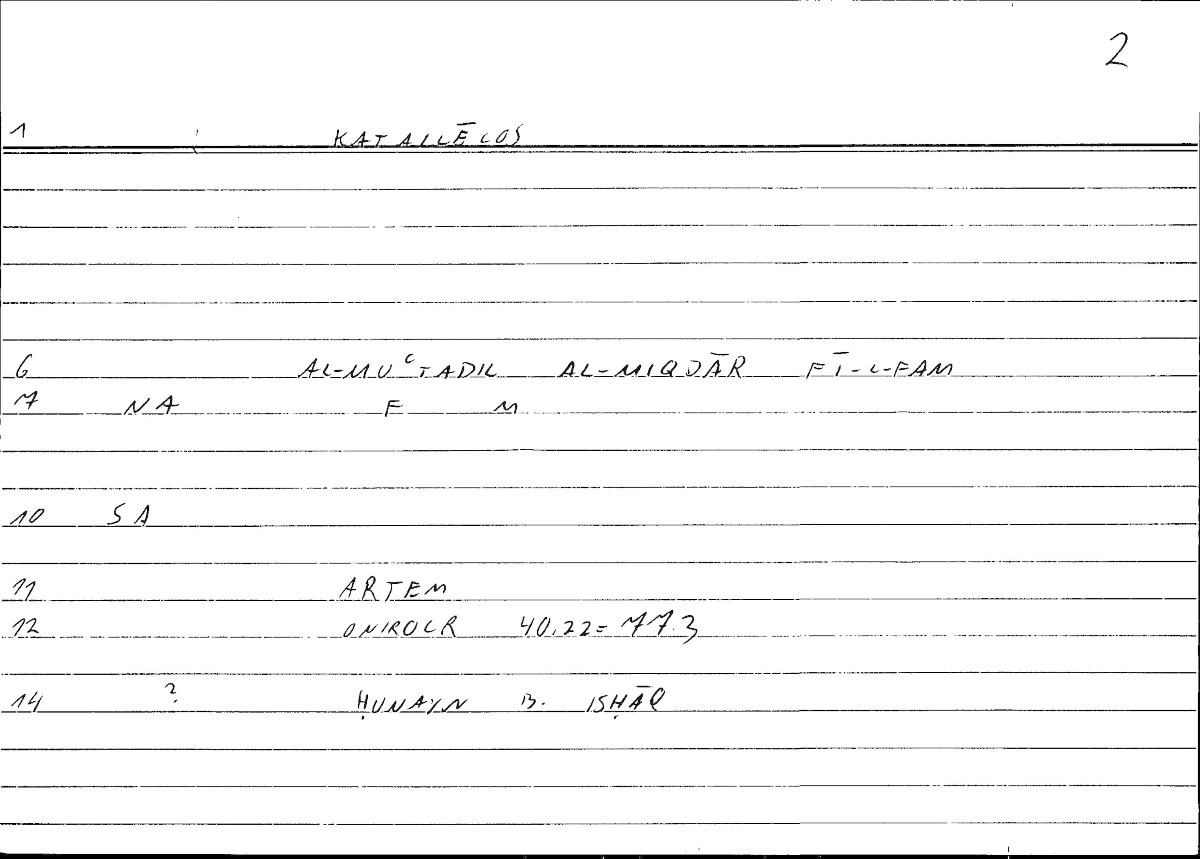 2
1 KATALLĒLOS
6 AL-MUʿTADIL AL-MIQDĀR FĪ-L-FAM
7 NA F M
10 SA
11 ARTEM
12 ONIROCR 40.22= 77.3
14 ? ḤUNAYN B. ISḤĀQ